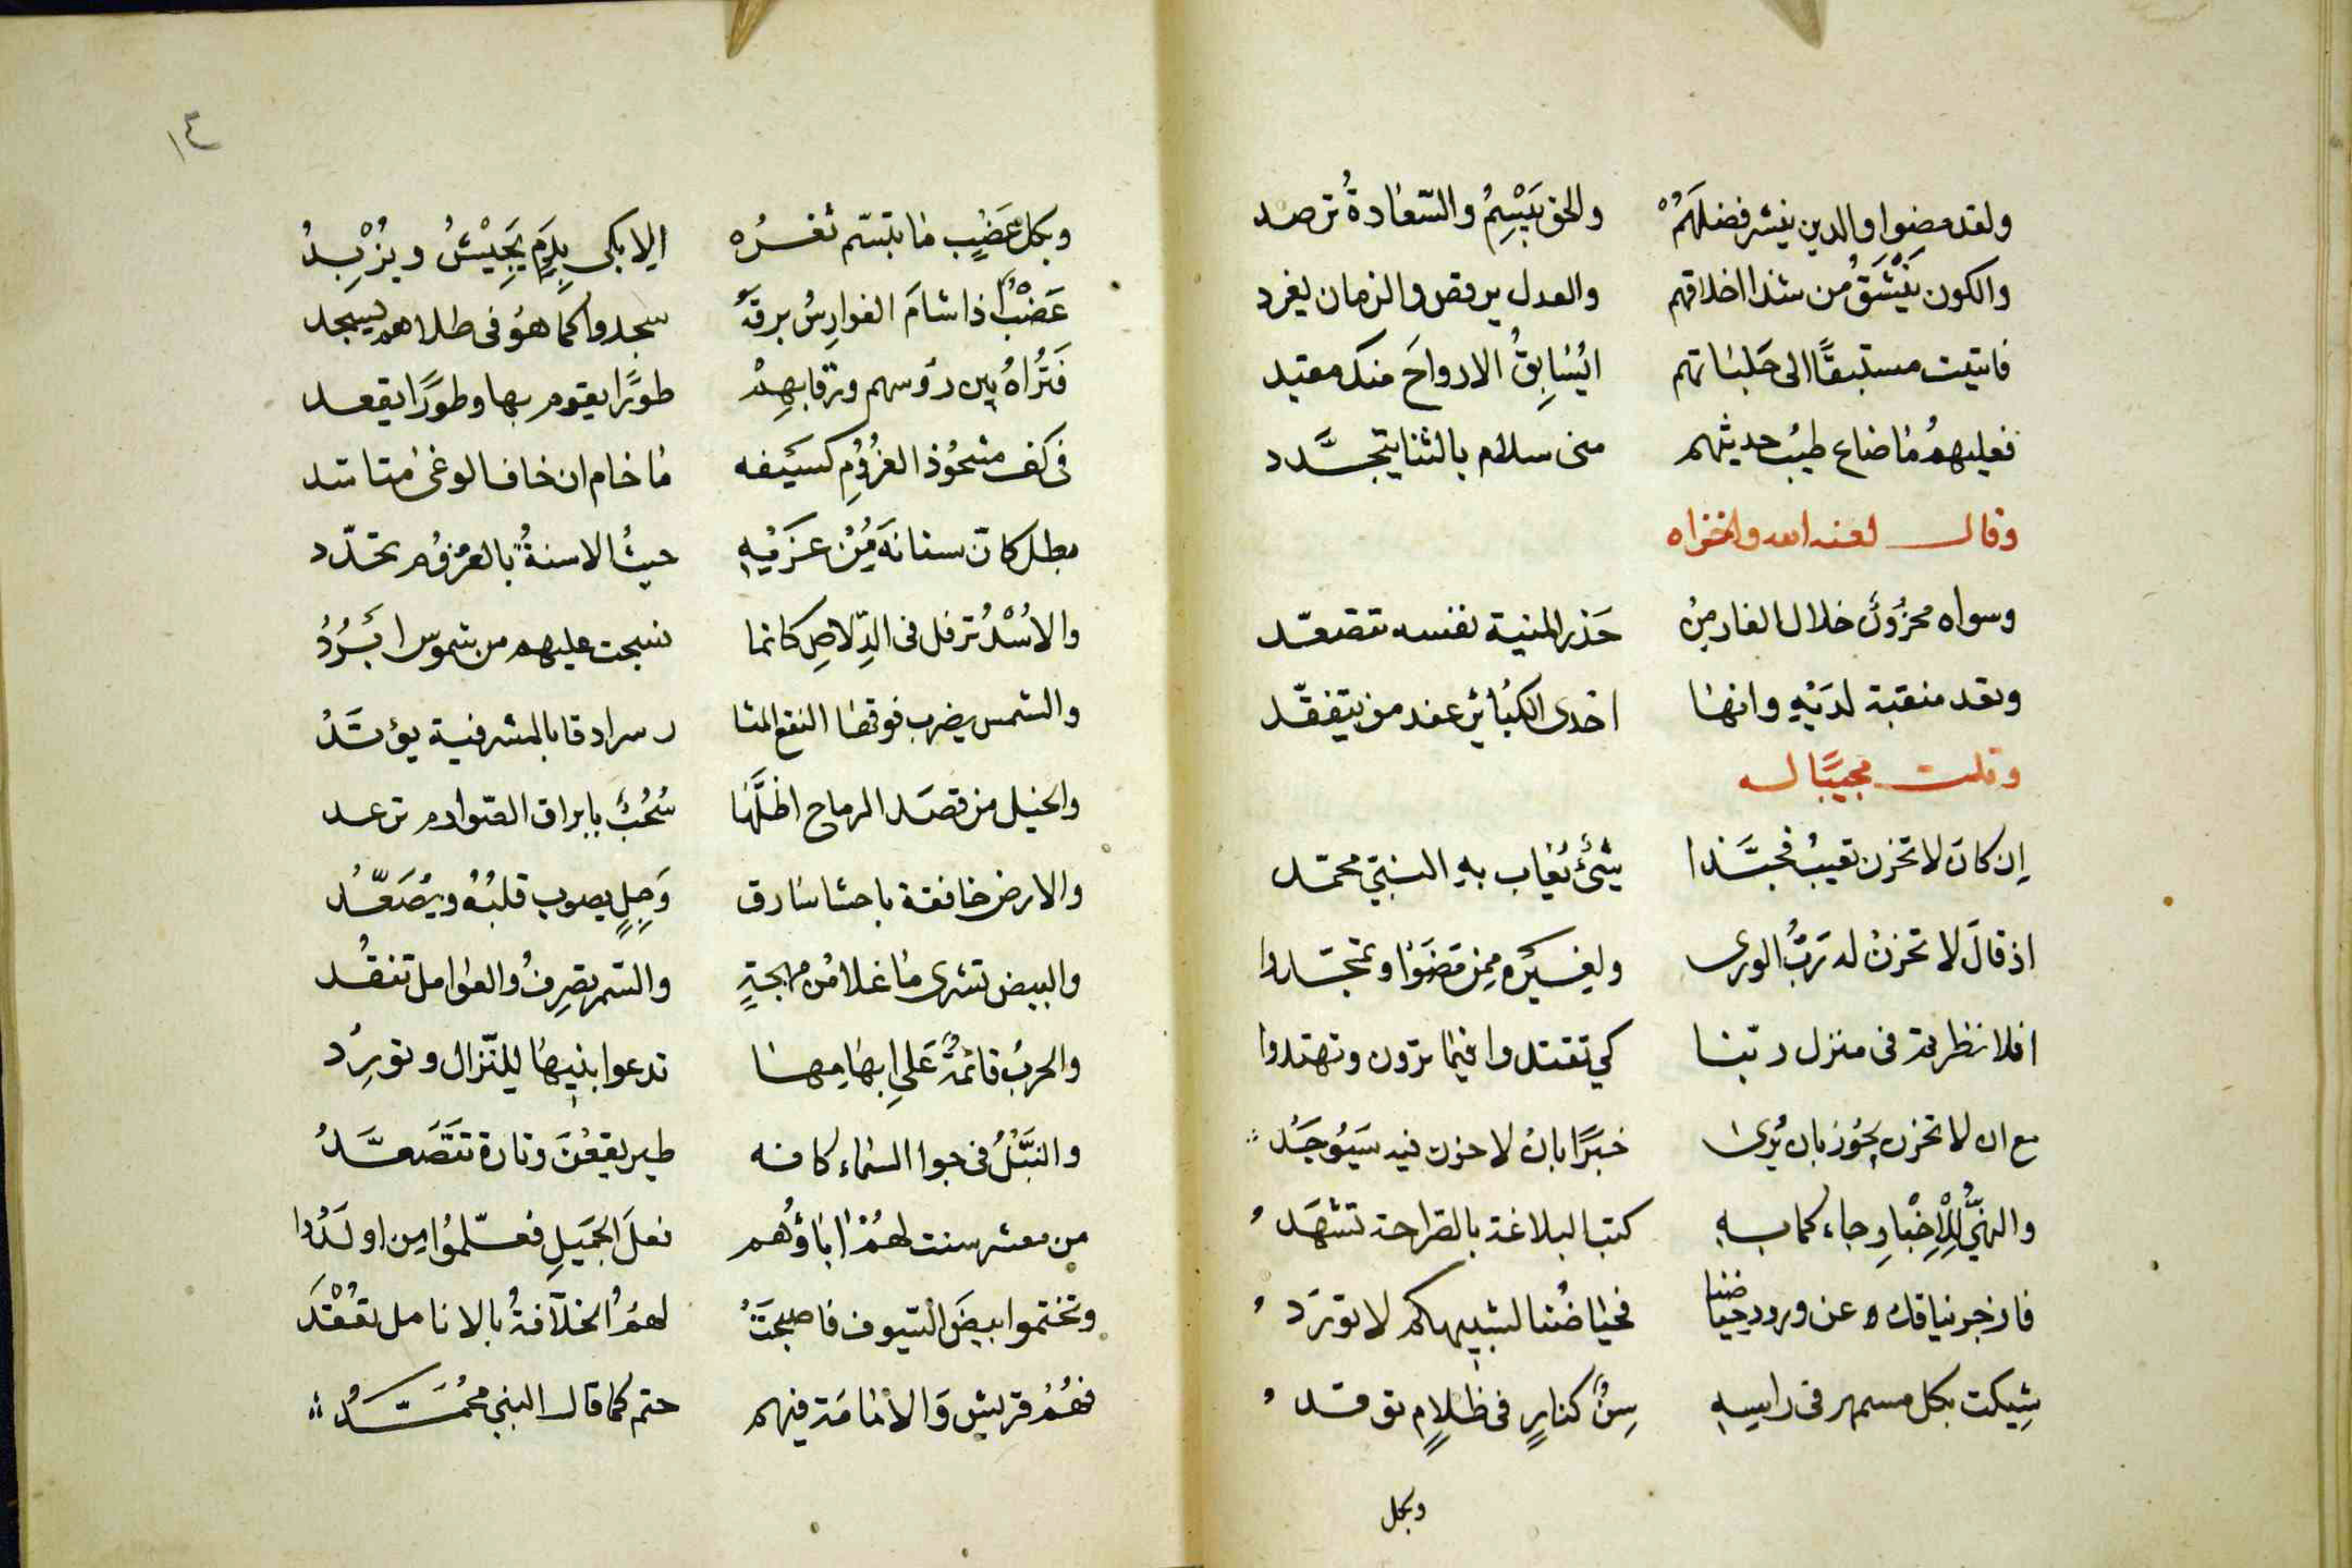 ولقد مضوا والدين ينشر فضلهم والحق يبسم والسعادة ترصد
والكون ينشق من شذا اخلاقهم والعدل يرقص والزمان يغرد
فاتيت مستبقا الى حلباتهم ايسابق الارواح منك مقيد
فعليهم ما ضاع طيب حديثهم منى سلام بالثنا يتجدد
وقال لعنه الله واخزاه
وسواه محزون خلال الغار من حذر المنية نفسه تتصعد
وتعد منقبة لديه وانها احدى الكبائر عند من يتفقد
وقلت مجيبا له
إن كان لا تحزن تعيب فحبذا شئ يعاب به النبي محمد
اذ قال لا تحزن له رب الورى ولغيره ممن مضوا وتمجدوا
افلا نظرتم في منزل ربنا كي تقتدوا فيما ترون وتهتدوا
مع ان لا تحزن يجوز بان يرى خبرا بان لا حزن فيه سيوجد
والنهي للاخبار جاء كما به كتب البلاغة بالصراحة تشهد
فازجر نياقك عن ورود حياضنا فحياضنا لشبيهكم لا تورد
شيكت بكل مسمهر في راسه سن كنار في ظلام توقد
وبكل
١٤
وبكل عضب ما تبسم ثغره الا بكى بدم يجيش ويزبد
عضب اذا شام الفوارس برقه سجدوا كما هو في طلاهم يسجد
فتراه بين رؤسهم ورقابهم طورا يقوم بها وطورا يقعد
في كف مشحوذ العزوم كسيفه ما خام ان خاف الوغى متاسد
بطل كان سنانه من عزميه حيث الاسنة بالعزوم تحدد
والاسد ترفل في الدلاص كانما نسجت عليهم من شموس ابرد
والشمس يضرب فوقها النقع المثا ر سرادقا بالمشرفية يؤتد
والخيل من قصد الرماح اظلها سحب بابراق الصوارم ترعد
والارض خافقة باحشا سارق وجل يصوب قلبه ويصعد
والبيض تشرى ما غلا من مهجة والسمر تصرف والعوامل تنقد
والحرب قائمة على ابهامها تدعوا بنيها للنزال وتورد
والنبل في جوا السماء كانه طير يقعن وتارة تتصعد
من معشر سنت لهم اباؤهم فعل الجميل فعلموا من اولدوا
وتختموا بيض السيوف فاصبحت لهم الخلافة بالانامل تعقد
فهم قريش والامامة فيهم حتم كما قال النبي محمد